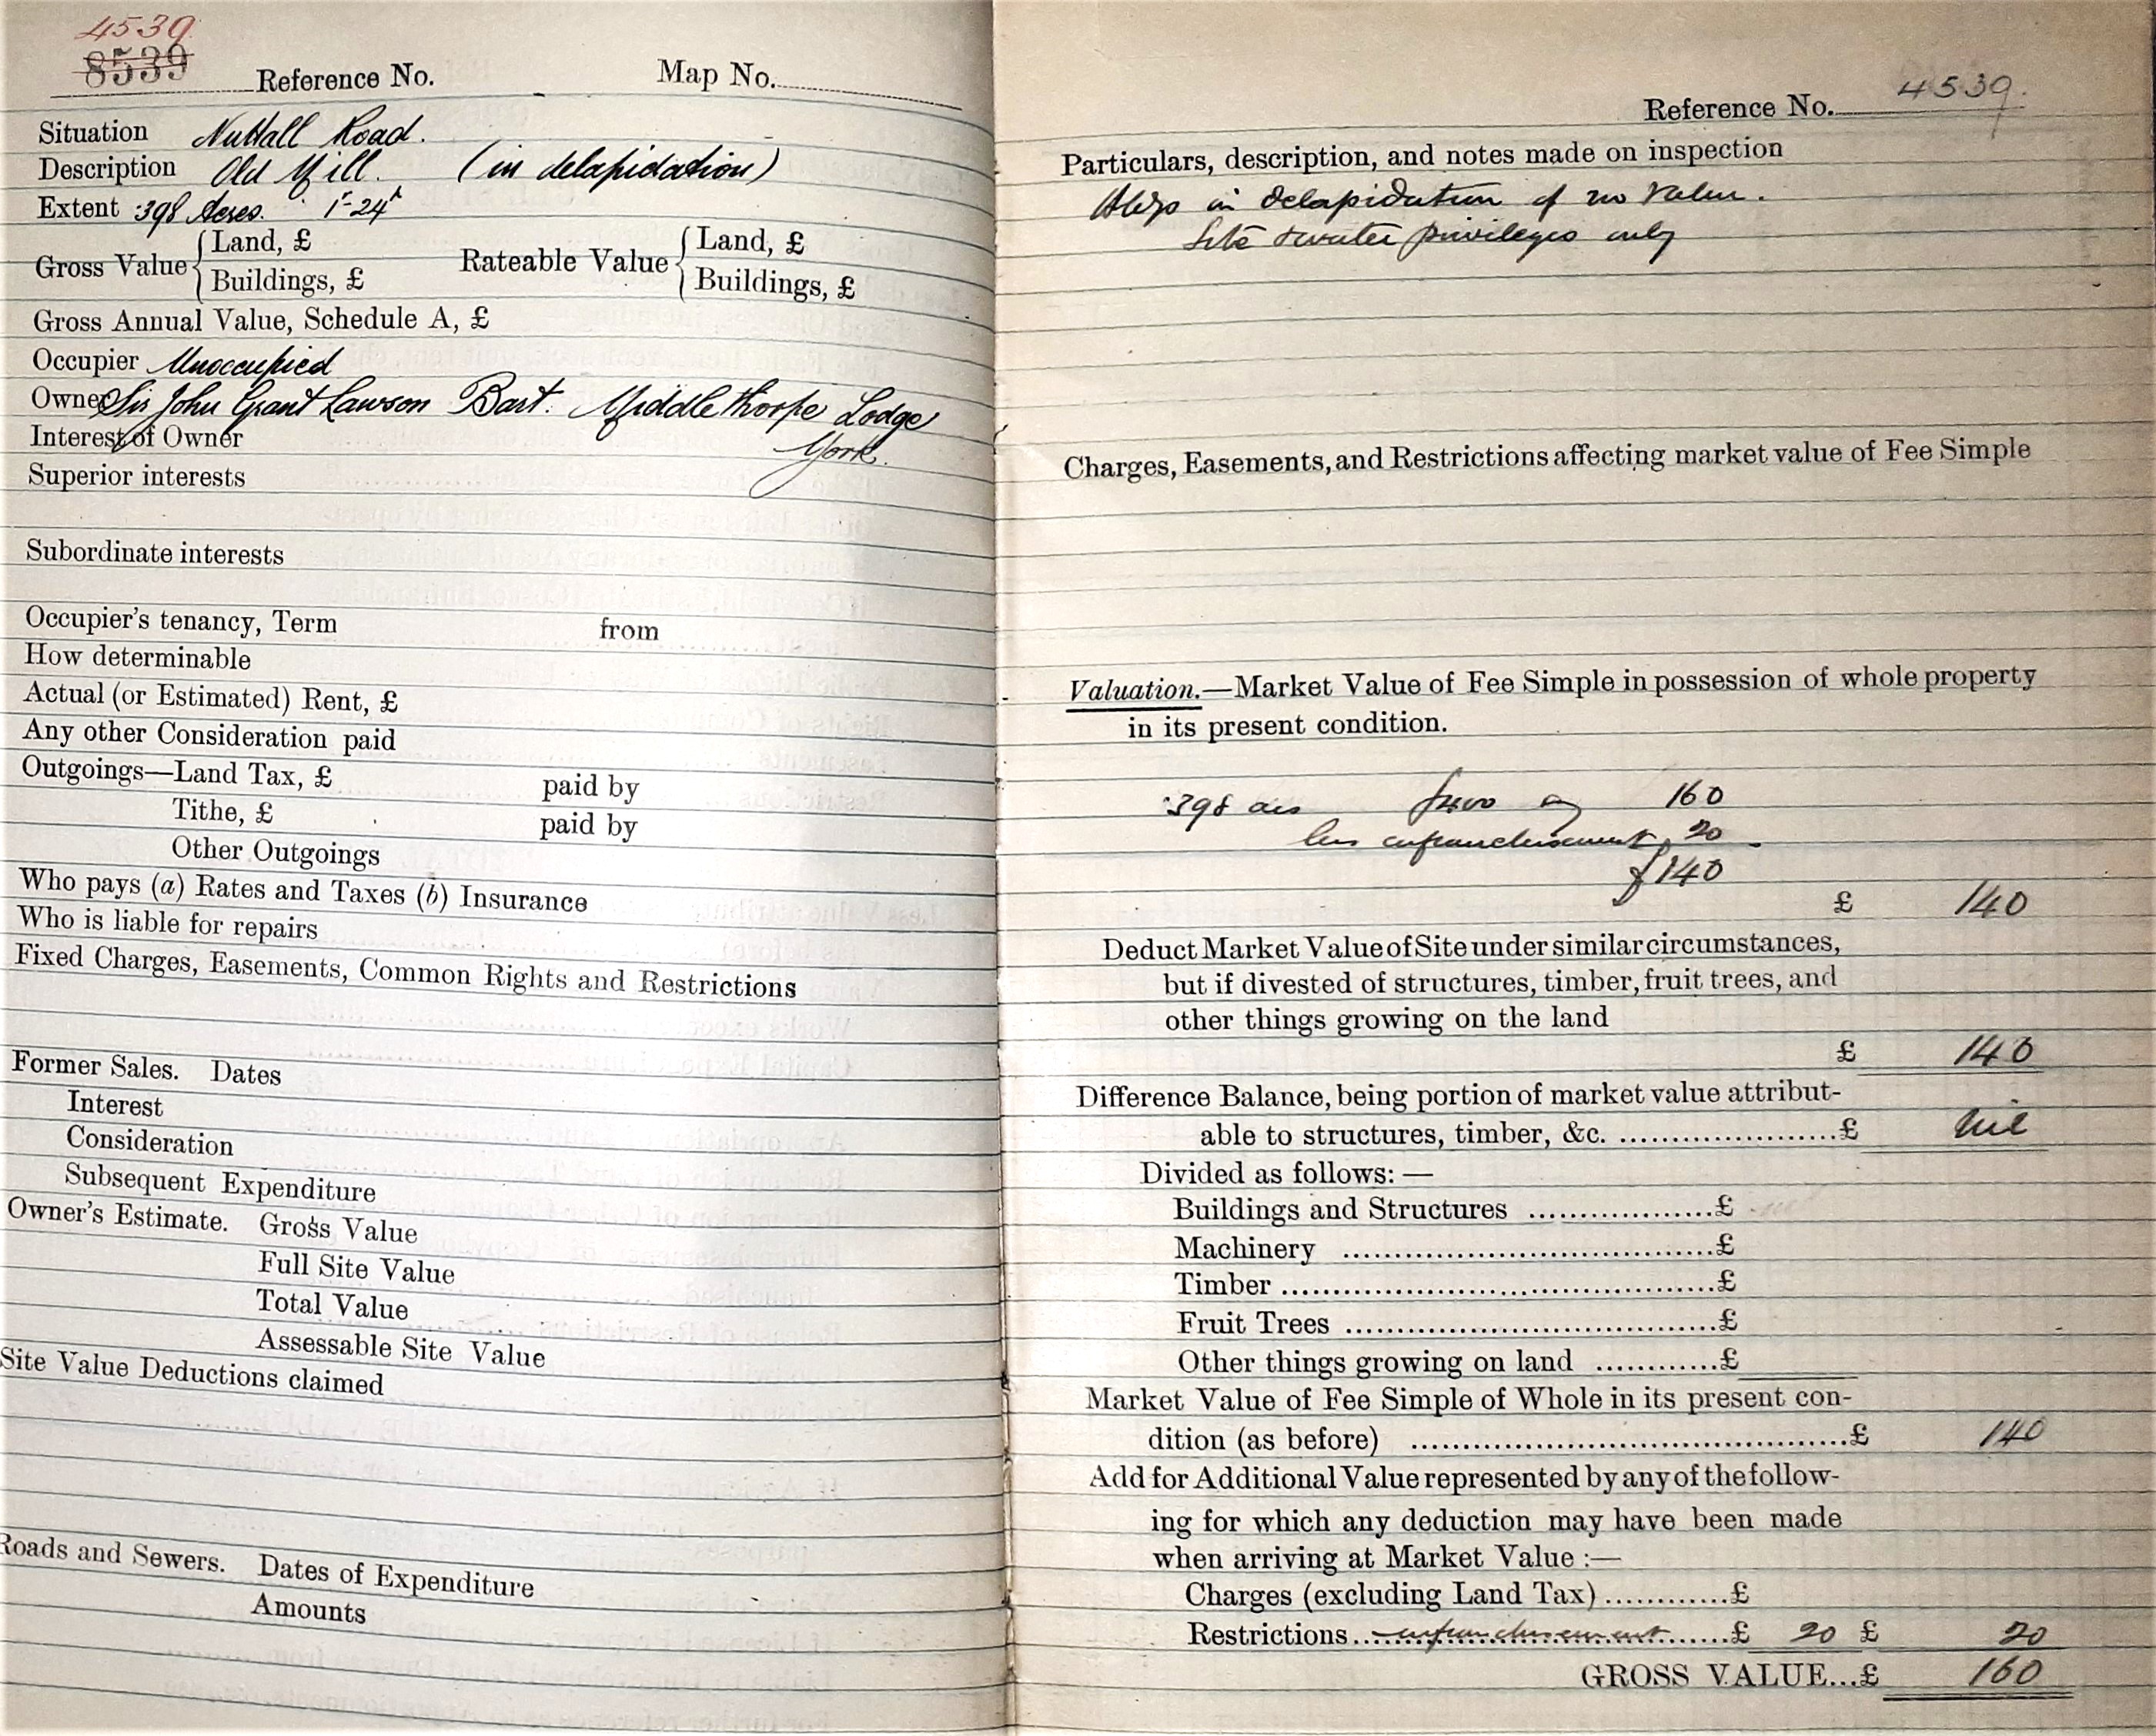 4539.
8539 Reference No. Map No.
Situation Nuttall Road.
Description Old Mill. (in delapidation)
Extent ·398 Acres. 1r-24p
Gross Value { Land, £ Rateable Value { Land, £
Buildings, £ Buildings, £
Gross Annual Value, Schedule A, £
Occupier Unoccupied
Owner Sir John Grant Lawson Bart. Middlethorpe Lodge
Interest of Owner York.
Superior interests
Subordinate interests
Occupier's tenancy, Term from
How determinable
Actual (or Estimated) Rent, £
Any other Consideration paid
Outgoings—Land Tax, £ paid by
Tithe, £ paid by
Other Outgoings
Who pays (a) Rates and Taxes (b) Insurance
Who is liable for repairs
Fixed Charges, Easements, Common Rights and Restrictions
Former Sales. Dates
Interest
Consideration
Subsequent Expenditure
Owner's Estimate. Gross Value
Full Site Value
Total Value
Assessable Site Value
Site Value Deductions claimed
Roads and Sewers. Dates of Expenditure
Amounts
Reference No. 4539.
Particulars, description, and notes made on inspection
Bldgs in delapidation of no value.
Site & water privileges only
Charges, Easements, and Restrictions affecting market value of Fee Simple
Valuation.—Market Value of Fee Simple in possession of whole property
in its present condition.
·398 acs £400 160
less enfranchisement 20
£140
£ 140
Deduct Market Value of Site under similar circumstances,
but if divested of structures, timber, fruit trees, and
other things growing on the land
£ 140
Difference Balance, being portion of market value attribut-
able to structures, timber, &c. ......................£ Nil
Divided as follows:—
Buildings and Structures ..................£
Machinery .....................................£
Timber ...........................................£
Fruit Trees .....................................£
Other things growing on land ............£
Market Value of Fee Simple of Whole in its present con-
dition (as before) ...........................................£ 140
Add for Additional Value represented by any of the follow-
ing for which any deduction may have been made
when arriving at Market Value :—
Charges (excluding Land Tax) ............£
Restrictions... enfranchisement ......£ 20 £ 20
GROSS VALUE...£ 160